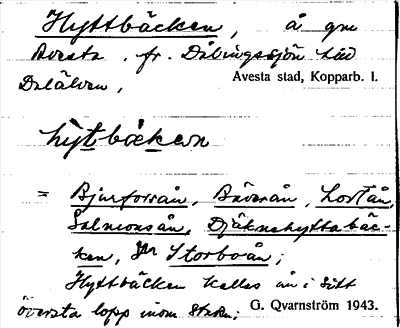 Hyttbäcken, å gm
Avesta, fr. Dälvingssjön till
Avesta stad, Kopparb. l.
Dalälven,
hýtbäken
= Bjurforsån, Bäverån, Lostån,
Salmonsån, Djäknehyttebäc-
ken, Storboån;
Hyttbäcken kallas ån i sitt
översta lopp inom staden;
G. Qvarnström 1943.